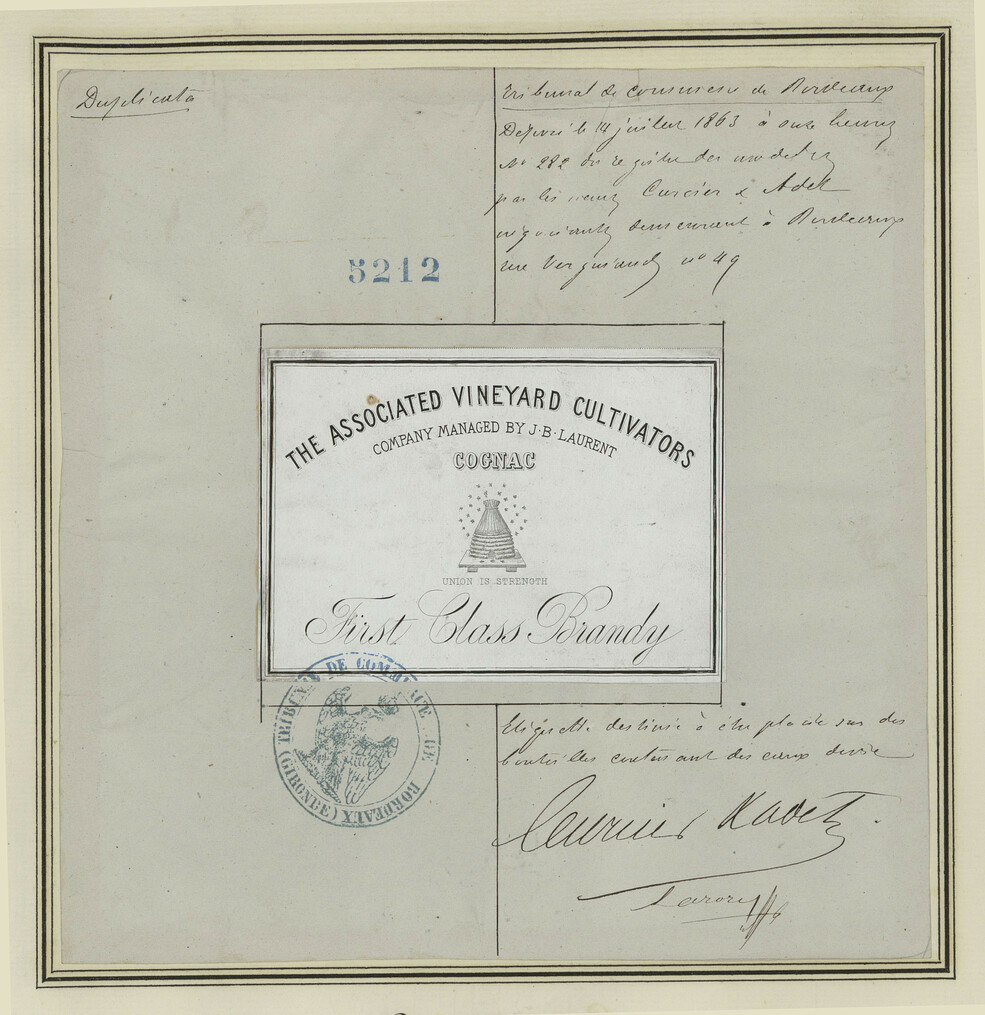 Duplicata
Tribunal de commerce de Bordeaux
Déposé le 14 juillet 1863 à onze heures
No 282 du registre des modèles
par les sieurs Cursier &
négociants demeurant à Bordeaux
rue Vergniaud no 49
5212
THE ASSOCIATED VINEYARD CULTIVATORS
COMPANY MANAGED BY J·B·LAURENT
COGNAC
UNION IS STRENGTH
First Class Brandy
TRIBUNAL DE COMMERCE DE BORDEAUX (GIRONDE)
Etiquette destinée à être placée sur des
bouteilles contenant des eaux de vie